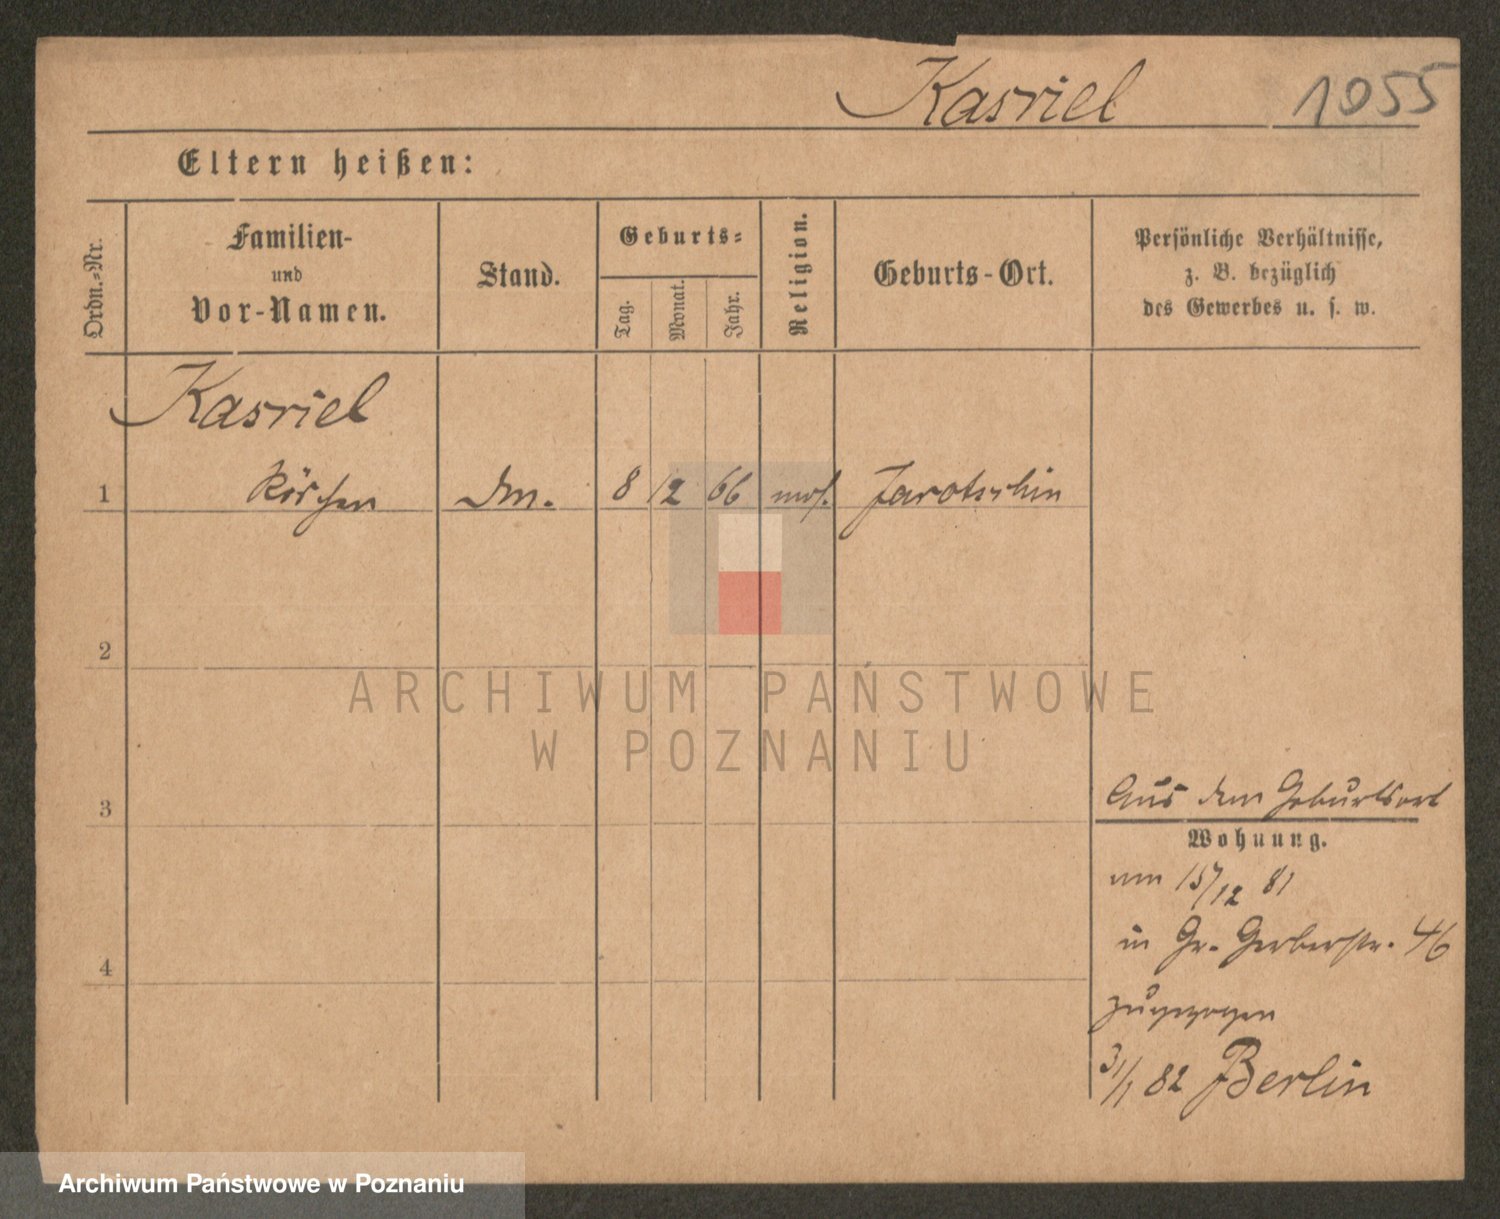 Kasriel 1055
Eltern heißen:
Ordn.-Nr.
Familien-
und
Vor-Namen.
Stand.
Geburts-
Tag.
Monat.
Jahr.
Religion.
Geburts-Ort.
Persönliche Verhältnisse,
z. B. bezüglich
des Gewerbes u. s. w.
Kasriel
1 Röschen 8 12 66 mos. Jarotschin
2
ARCHIWUM PAŃSTWOWE
W POZNANIU
3
Aus dem Geburtsort
Wohnung.
am 15/12 81
in Gr. Gerberstr. 46
4
zugezogen
31/1 82 Berlin
Archiwum Państwowe w Poznaniu